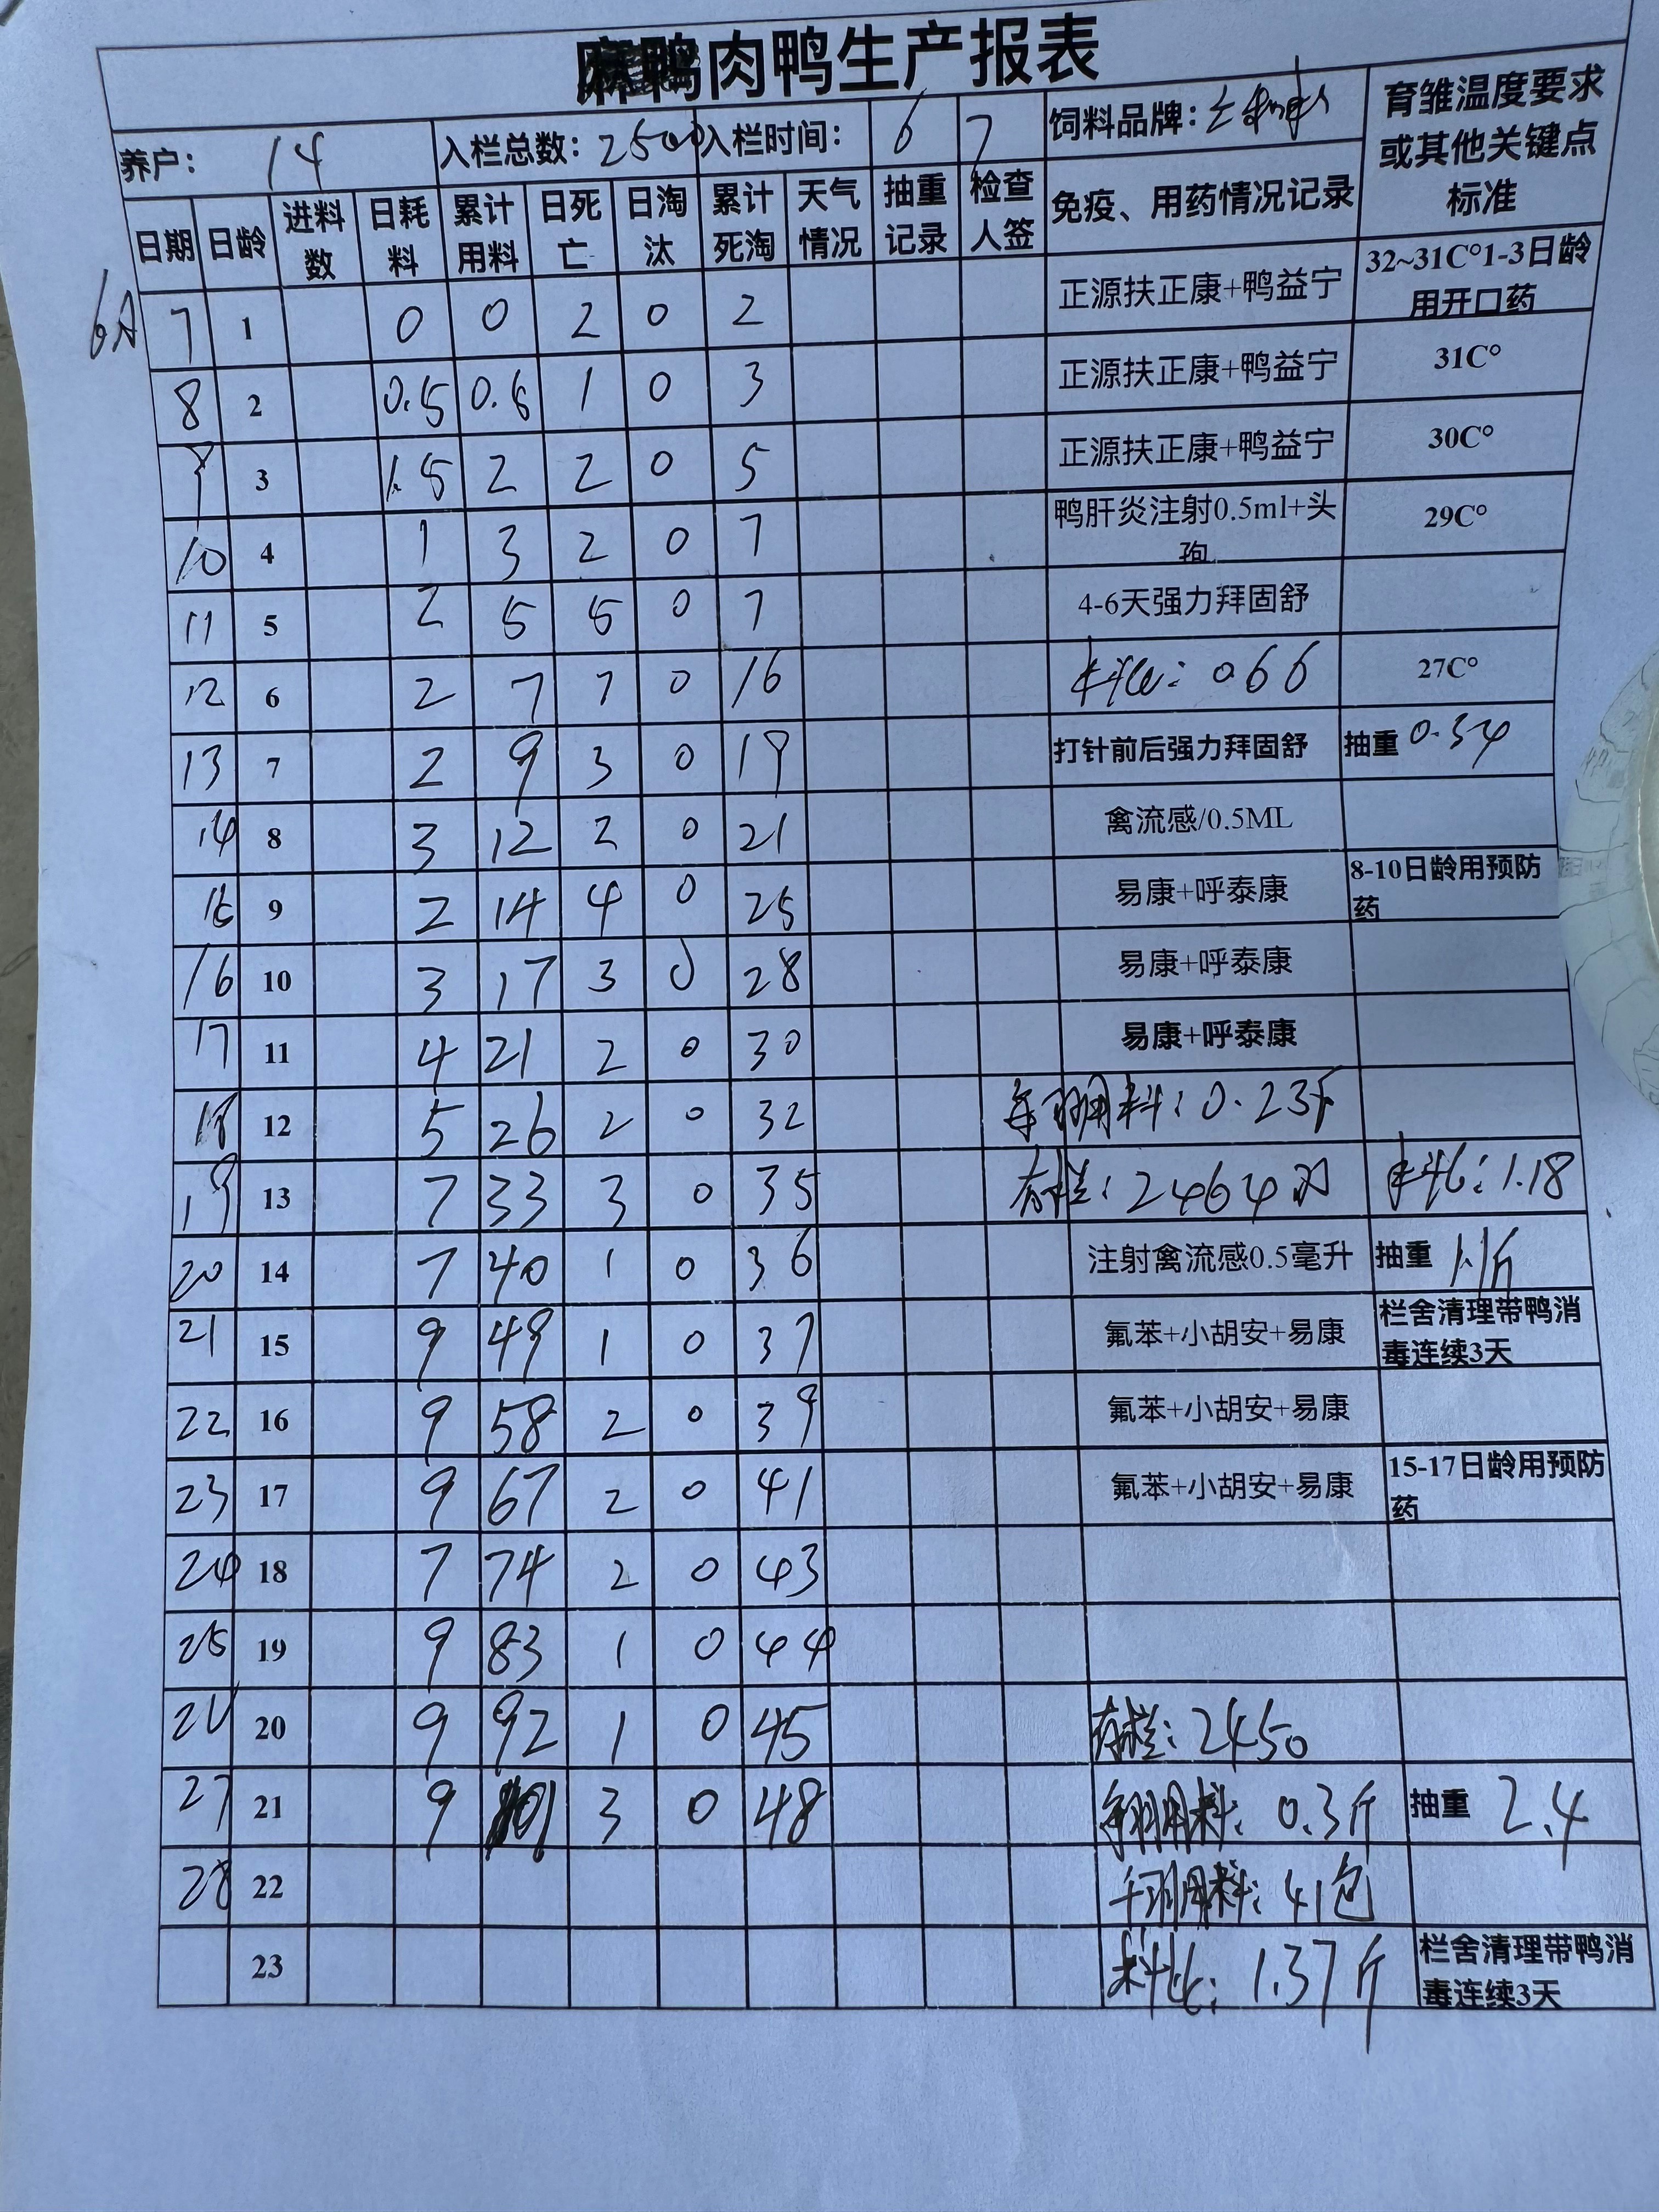 麻鸭肉鸭生产报表
养户: 14 入栏总数: 2500 入栏时间: 6 7 饲料品牌: 育雏温度要求或其他关键点标准
日期 日龄 进料数 日耗料 累计用料 日死亡 日淘汰 累计死淘 天气情况 抽重记录 检查人签 免疫、用药情况记录
6月 7 1 0 0 2 0 2 正源扶正康+鸭益宁 32~31C°1-3日龄用开口药
8 2 0.5 0.5 1 0 3 正源扶正康+鸭益宁 31C°
9 3 1.5 2 2 0 5 正源扶正康+鸭益宁 30C°
10 4 1 3 2 0 7 鸭肝炎注射0.5ml+头孢 29C°
11 5 2 5 5 0 7 4-6天强力拜固舒
12 6 2 7 7 0 16 料比: 0.66 27C°
13 7 2 9 3 0 19 打针前后强力拜固舒 抽重 0.34
14 8 3 12 2 0 21 禽流感/0.5ML
15 9 2 14 4 0 25 易康+呼泰康 8-10日龄用预防药
16 10 3 17 3 0 28 易康+呼泰康
17 11 4 21 2 0 30 易康+呼泰康
18 12 5 26 2 0 32 每羽用料: 0.23斤
19 13 7 33 3 0 35 存栏: 2464羽 料比: 1.18
20 14 7 40 1 0 36 注射禽流感0.5毫升 抽重 1.1斤
21 15 9 49 1 0 37 氟苯+小胡安+易康 栏舍清理带鸭消毒连续3天
22 16 9 58 2 0 39 氟苯+小胡安+易康
23 17 9 67 2 0 41 氟苯+小胡安+易康 15-17日龄用预防药
24 18 7 74 2 0 43
25 19 9 83 1 0 44
26 20 9 92 1 0 45 存栏: 2450
27 21 9 101 3 0 48 每羽用料: 0.3斤 抽重 2.4
28 22 千羽用料: 41包
23 料比: 1.37斤 栏舍清理带鸭消毒连续3天